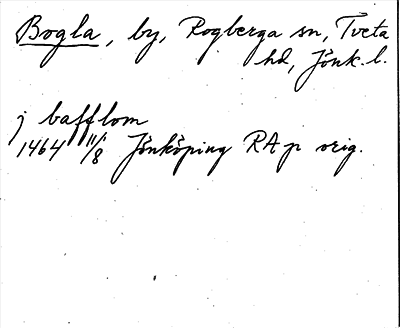 Bogla, by, Rogberga sn, Tveta
hd, Jönk. l.
j bafflom
1464 11/8 Jönköping RAp orig.